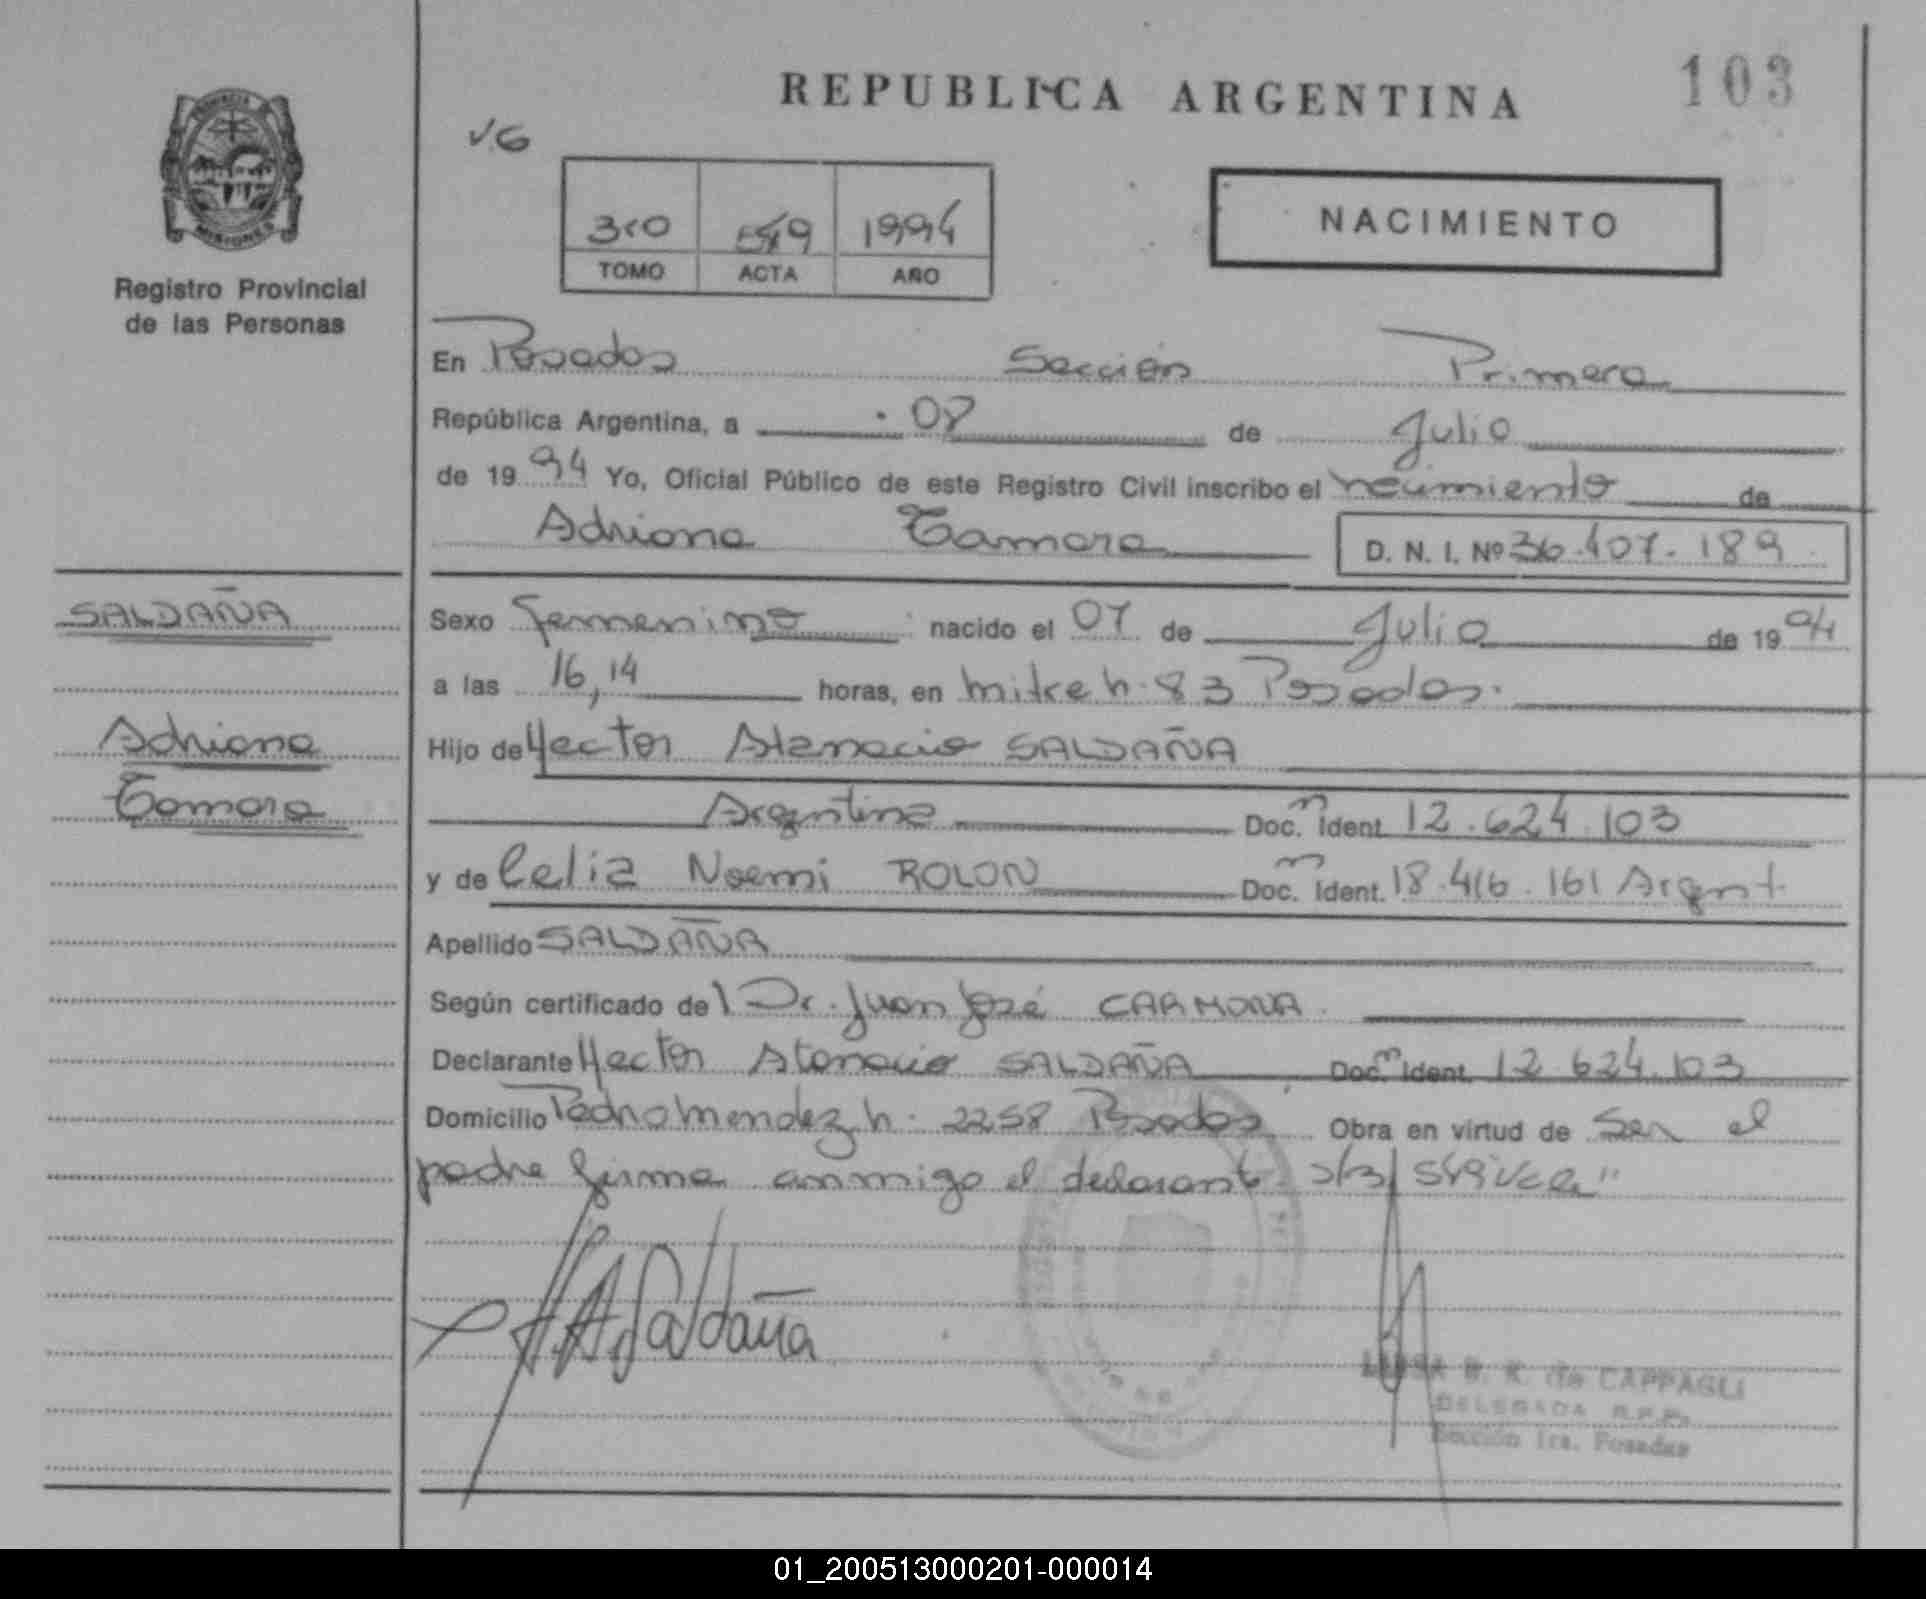 REPUBLICA ARGENTINA
103
PROVINCIA
MISIONES
Registro Provincial
de las Personas
V.G
1994
TOMO ACTA AÑO
NACIMIENTO
En Posadas Sección Primera
República Argentina, a 08 de Julio
de 1994 Yo, Oficial Público de este Registro Civil inscribo el nacimiento de
Adriana Tamara D. N. I. Nº 36.407.189
SALDAÑA
Adriana
Tamara
Sexo femenino nacido el 07 de Julio de 1994
a las 16,14 horas, en mitre n. 83 Posadas.
Hijo de Hector Atanacio SALDAÑA
Argentina Doc. m Ident. 12.624.103
y de Celia Noemi ROLON Doc. m Ident. 18.416.161 Argent.
Apellido SALDAÑA
Según certificado del Dr. Juan José CARMONA.
Declarante Hector Atanacio SALDAÑA Doc. m Ident. 12.624.103
Domicilio Pedro Mendez n. 2258 Posadas Obra en virtud de Ser el
padre firma conmigo el declarante
H.A.Saldaña
B. K. de CAPPAGLI
DELEGADA R.P.P.
Sección 1ra. Posadas
01_200513000201-000014